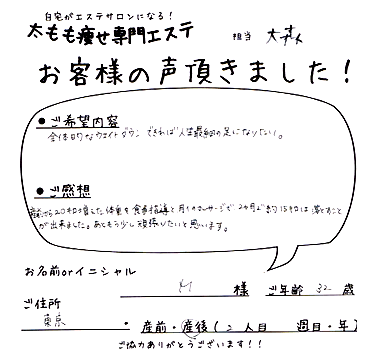 自宅がエステサロンになる！
太もも痩せ専門エステ
担当
お客様の声頂きました！
●ご希望内容
全体的なウエイトダウン できれば人生最細の足になりたい。
●ご感想
産後から20キロ増した体重を食事指導と月1のマッサージで2ヶ月で約15キロは落とすこと
が出来ました。あともう少し頑張りたいと思います。
お名前orイニシャル
M 様 ご年齢 32 歳
ご住所
東京 ・ 産前・産後（2人目 週目・年）
ご協力ありがとうございます！！